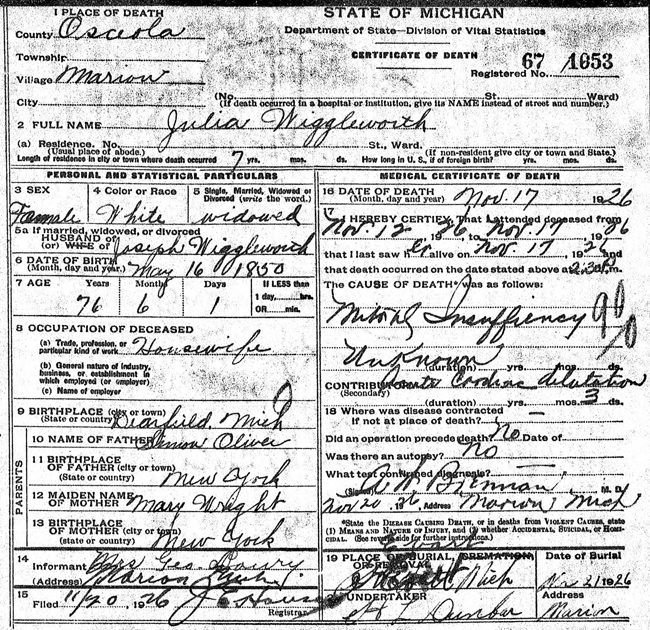 1 PLACE OF DEATH
County Osceola
Township
Village Marion
City
STATE OF MICHIGAN
Department of State—Division of Vital Statistics
CERTIFICATE OF DEATH
67 1053
Registered No.
(No. St. Ward)
(If death occurred in a hospital or institution, give its NAME instead of street and number.)
2 FULL NAME Julia Wiggleworth
(a) Residence. No. St., Ward.
(Usual place of abode.) (If non-resident give city or town and State.)
Length of residence in city or town where death occurred 7 yrs. mos. ds. How long in U. S., if of foreign birth? yrs. mos. ds.
PERSONAL AND STATISTICAL PARTICULARS
3 SEX 4 Color or Race 5 Single, Married, Widowed or
Divorced (write the word.)
Female White widowed
5a If married, widowed, or divorced
HUSBAND of
(or) WIFE of Joseph Wiggleworth
6 DATE OF BIRTH
(Month, day and year.) May 16 1850
7 AGE Years Months Days If LESS than
1 day,....hrs.
OR......min.
76 6 1
8 OCCUPATION OF DECEASED
(a) Trade, profession, or
particular kind of work Housewife
(b) General nature of industry,
business, or establishment in
which employed (or employer)
(c) Name of employer
9 BIRTHPLACE (city or town)
(State or country) Dearfield, Mich
PARENTS
10 NAME OF FATHER Simon Oliver
11 BIRTHPLACE
OF FATHER (city or town)
(State or country) New York
12 MAIDEN NAME
OF MOTHER Mary Wright
13 BIRTHPLACE
OF MOTHER (city or town)
(state or country) New York
14 Informant Mrs Geo.
(Address) Marion Mich.
15 Filed 11/20, 1926 J E
Registrar.
MEDICAL CERTIFICATE OF DEATH
16 DATE OF DEATH
(Month, day and year) Nov. 17 1926
17 I HEREBY CERTIFY, That I attended deceased from
Nov. 12 1926, to Nov. 17, 1926
that I last saw h er alive on Nov. 17 1926
and that death occurred on the date stated above at 2:30 m.
The CAUSE OF DEATH* was as follows:
Mitral Insuffiency 90
Unknown
(duration) yrs. mos. ds.
CONTRIBUTORY Acute Cardiac dilatation
(Secondary) (duration) yrs. mos. 3 ds.
18 Where was disease contracted
if not at place of death? —
Did an operation precede death? No Date of
Was there an autopsy? No
What test confirmed diagnosis? —
(Signed) M. D.
Nov 20 1926 Address Marion, Mich
*State the DISEASE CAUSING DEATH, or in deaths from VIOLENT CAUSES, state
(1) MEANS AND NATURE OF INJURY, and (2) whether ACCIDENTAL, SUICIDAL, OR HOMI-
CIDAL. (See reverse side for further instructions.)
19 PLACE OF BURIAL, CREMATION Date of Burial
OR REMOVAL
Mich Nov 21 1926
20 UNDERTAKER Address
Dunbar Marion